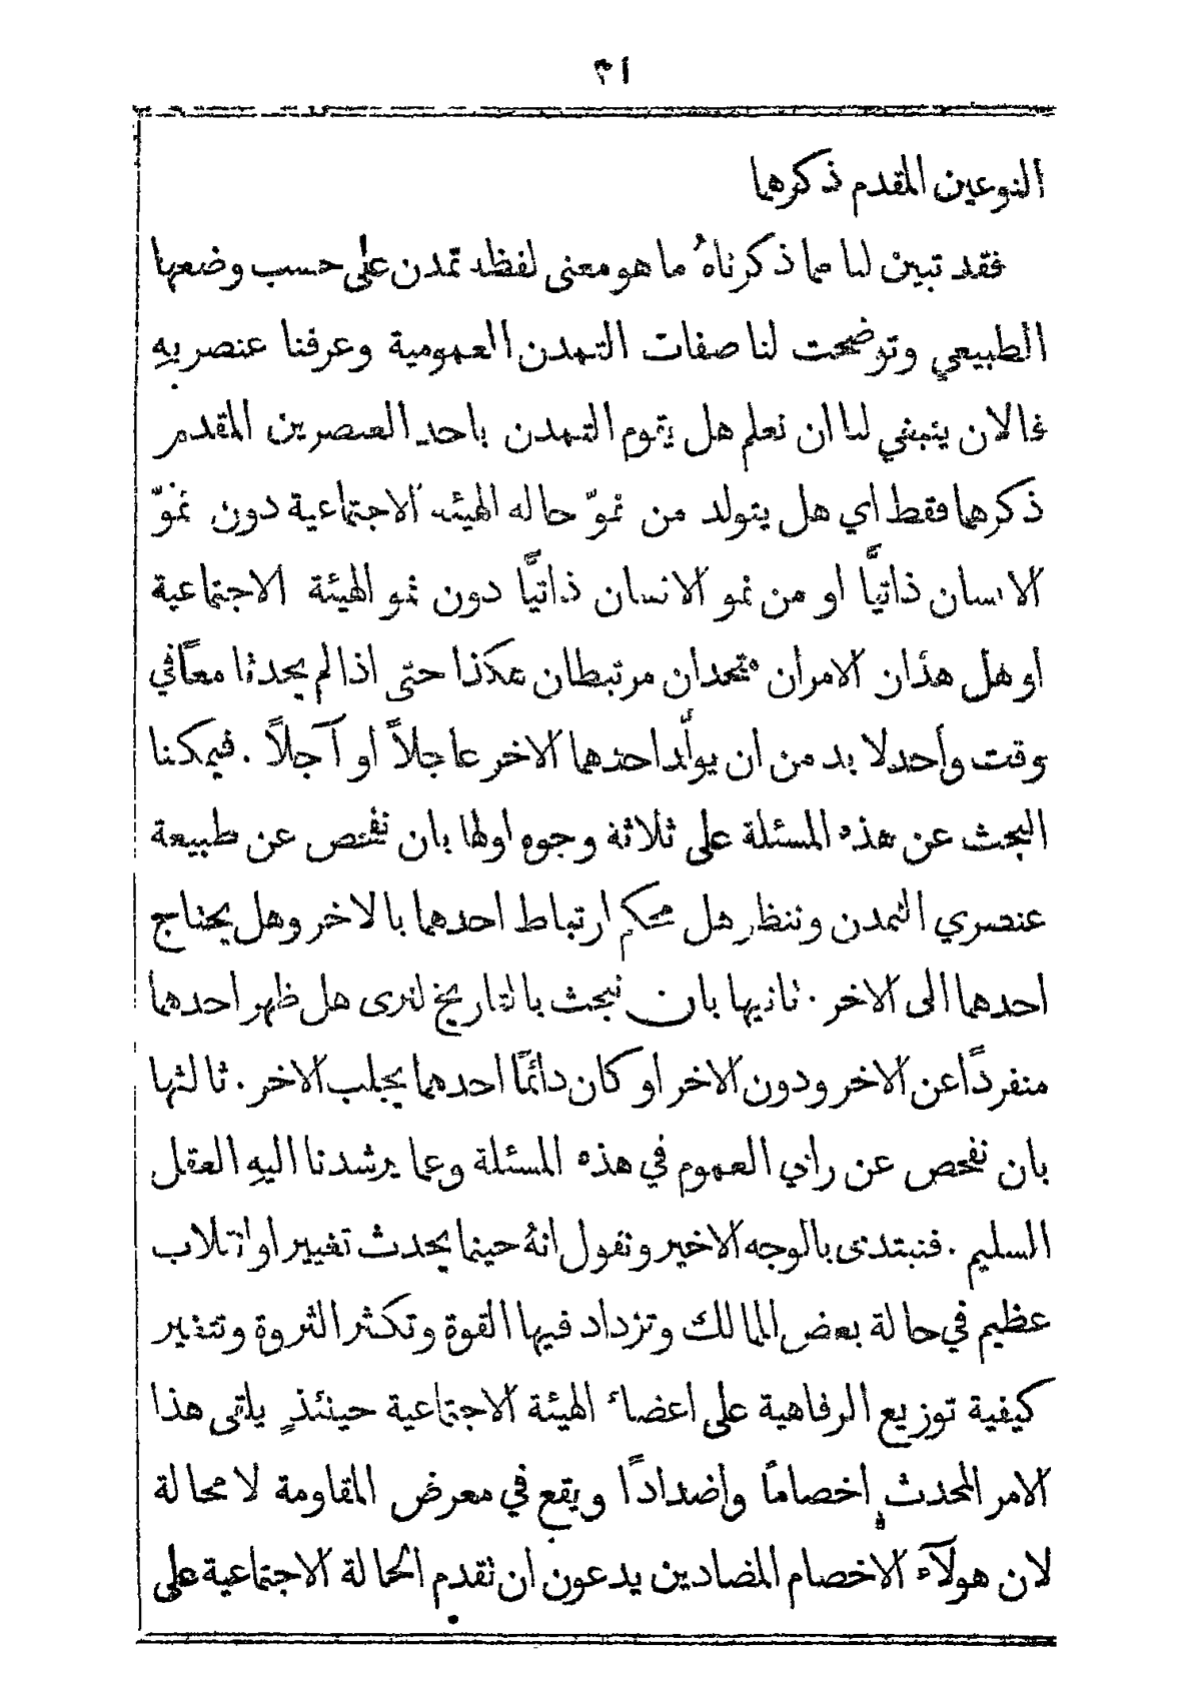 النوعين المقدم ذكرهما
فقد تبين لنا مما ذكرناهُ ما هو معنى لفظة تمّدن على حسب وضعها
الطبيعي وتوضحت لنا صفات التمدن العمومية وعرفنا عنصريهِ
فالان ينبغي لنا ان نعلم هل يقوم التمدن باحد العنصرين المقدم
ذكرهما فقط اي هل يتولد من نموّ حاله الهيئه الاجتماعية دون نموّ
الانسان ذاتيًّا او من نمو الانسان ذاتيًّا دون نمو الهيئة الاجتماعية
او هل هذان الامران متحدان مرتبطان هكذا حتى اذا لم يحدثا معًا في
وقت واحد لا بد من ان يولّد احدهما الاخر عاجلاً او آجلاً . فيمكننا
البحث عن هذه المسئلة على ثلاثة وجوه اولها بان نفحص عن طبيعة
عنصري التمدن وننظر هل محكم ارتباط احدهما بالاخر وهل يحتاج
احدهما الى الاخر . ثانيها بان نبحث بالتاريخ لنرى هل ظهر احدهما
منفردًا عن الاخر ودون الاخر او كان دائمًا احدهما يجلب الاخر . ثالثها
بان نفحص عن راي العموم في هذه المسئلة وعما يرشدنا اليهِ العقل
السليم . فنبتدى بالوجه الاخير ونقول انهُ حينما يحدث تغيير او انقلاب
عظيم في حالة بعض الممالك وتزداد فيها القوة وتكثر الثروة وتتغير
كيفية توزيع الرفاهية على اعضاء الهيئة الاجتماعية حينئذٍ يلقى هذا
الامر المحدث اخصامًا واضدادًا ويقع في معرض المقاومة لا محالة
لان هولآء الاخصام المضادين يدعون ان تقدم الحالة الاجتماعية على